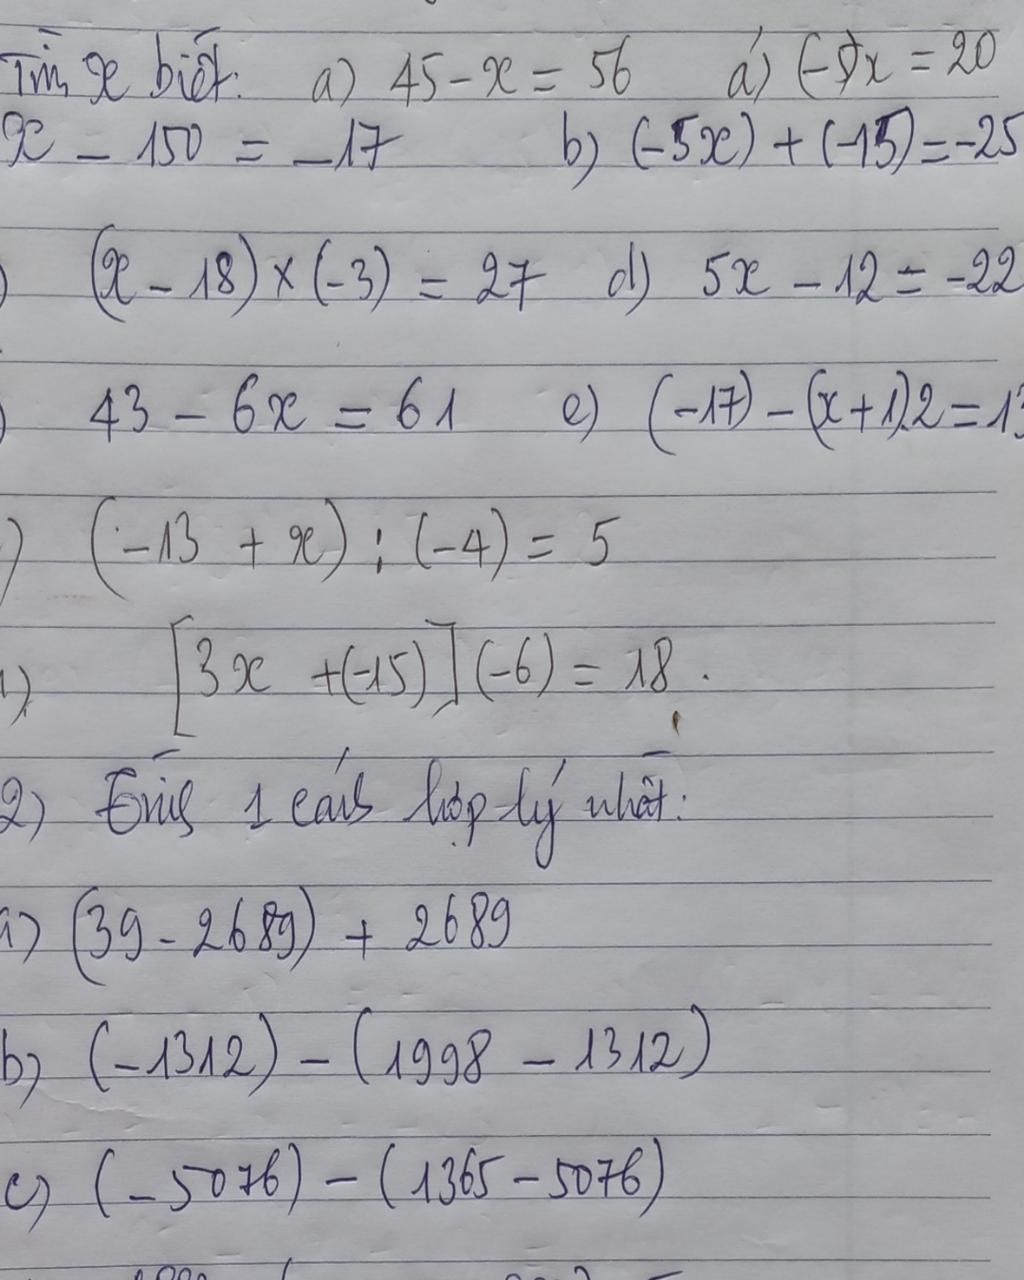 Tìm x biết: a) 45 - x = 56 á) (-5)x = 20
x - 150 = -17 b) (-5x) + (-15) = -25
) (x - 18) × (-3) = 27 d) 5x - 12 = -22
) 43 - 6x = 61 e) (-17) - (x + 1).2 = 13
) (-13 + x) : (-4) = 5
) [3x + (-15)] (-6) = 18.
2) 1 cách hợp lý nhất:
a) (39 - 2689) + 2689
b) (-1312) - (1998 - 1312)
c) (-5076) - (1365 - 5076)